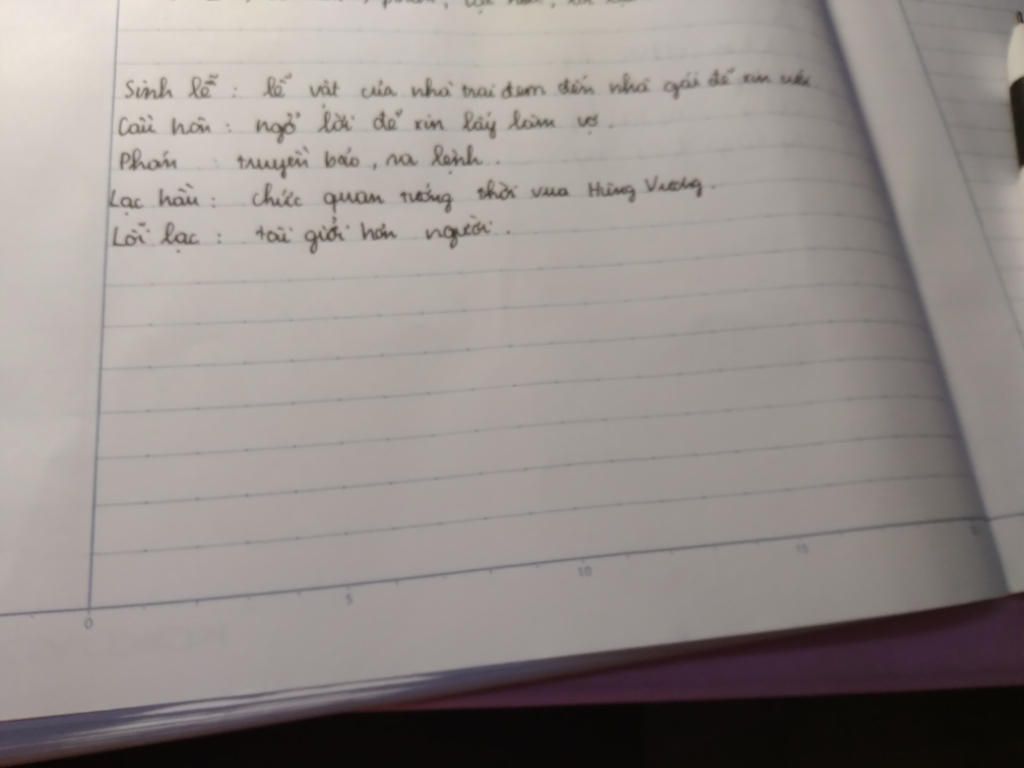 Sính lễ : lễ vật của nhà trai đem đến nhà gái để xin cưới.
Cầu hôn : ngỏ lời để xin lấy làm vợ.
Phán : truyền bảo, ra lệnh.
Lạc hầu : chức quan tướng thời vua Hùng Vương.
Lỗi lạc : tài giỏi hơn người.
0 5 10 15